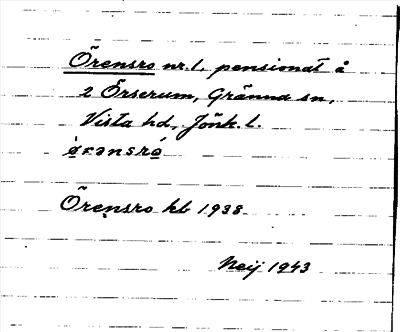 Örensro nr. 1, pensionat å
2 Örserum, Gränna sn,
Vista hd, Jönk. l.
ø̀rənsrò
Örensro kb 1938
Neij 1943